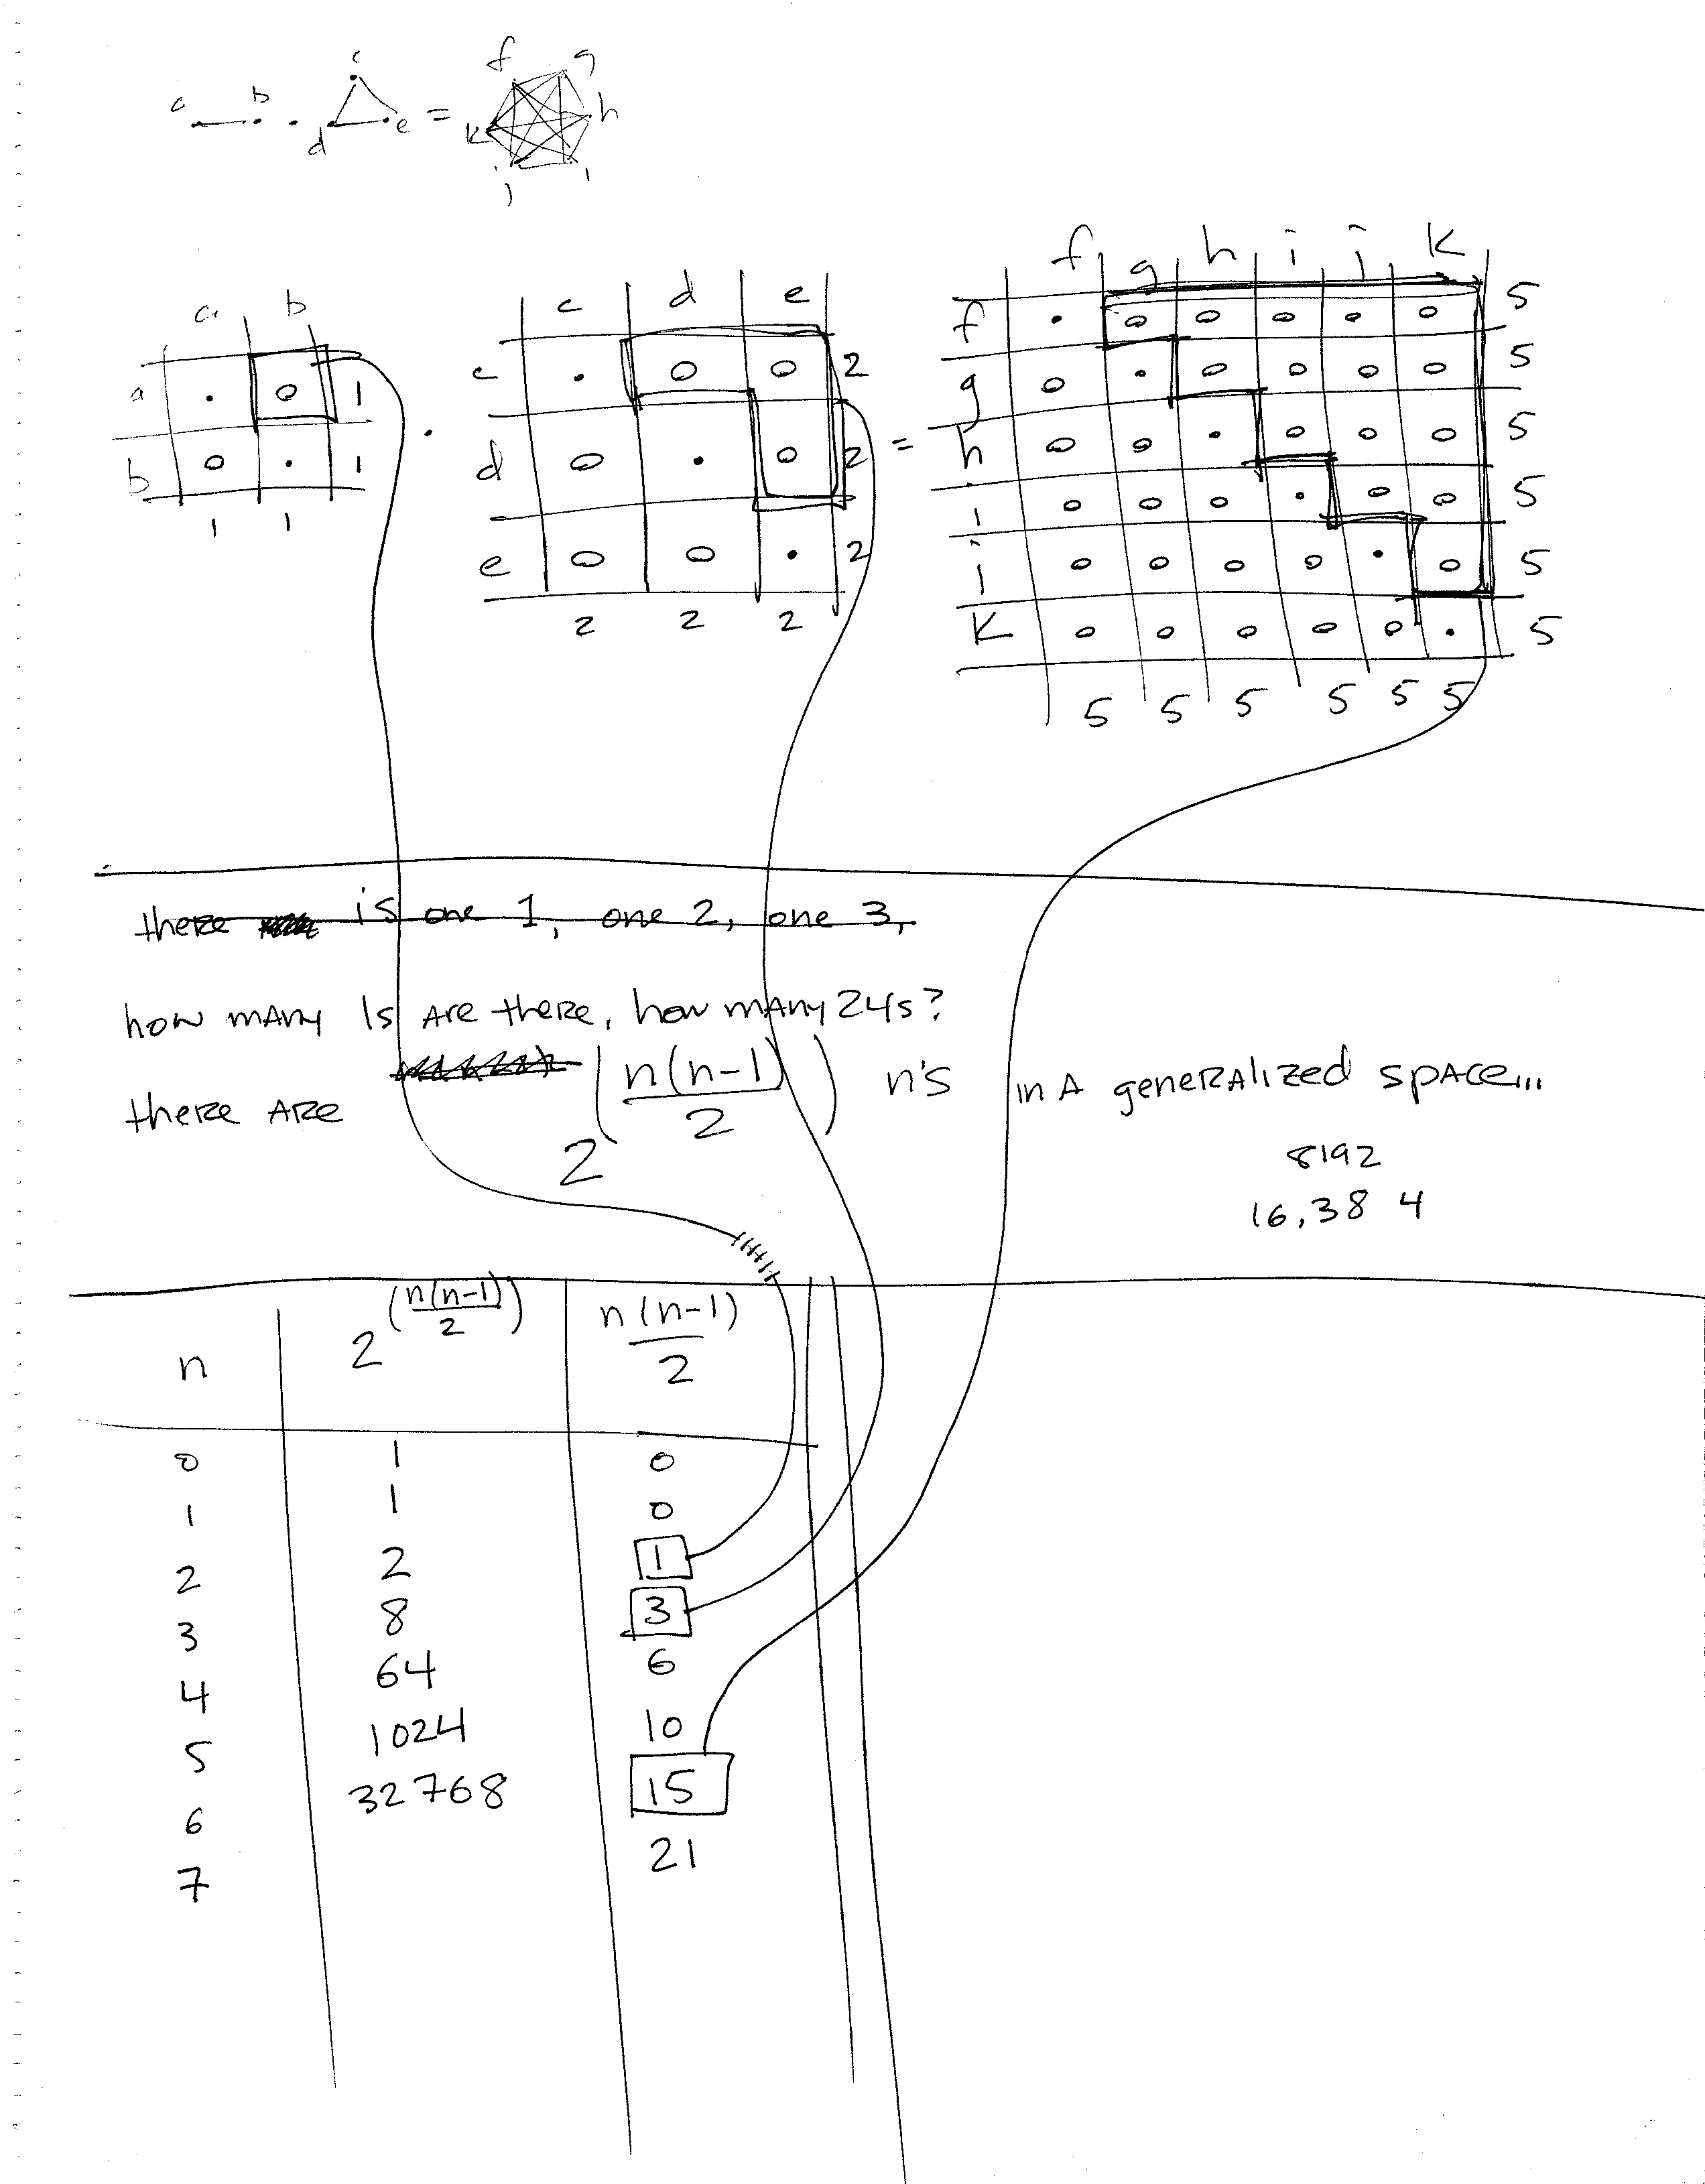 a b c d e = f g h i j k
a b
a . o 1
b o . 1
1 1
.
c d e
c . o o 2
d o . o 2
e o o . 2
2 2 2
=
f g h i j k
f . o o o o o 5
g o . o o o o 5
h o o . o o o 5
i o o o . o o 5
j o o o o . o 5
k o o o o o . 5
5 5 5 5 5 5
there is one 1, one 2, one 3,
how many 1s are there, how many 24s?
there are 2^(n(n-1)/2) n's in a generalized space...
8192
16,384
n 2^(n(n-1)/2) n(n-1)/2
0 1 0
1 1 0
2 2 1
3 8 3
4 64 6
5 1024 10
6 32768 15
7 21